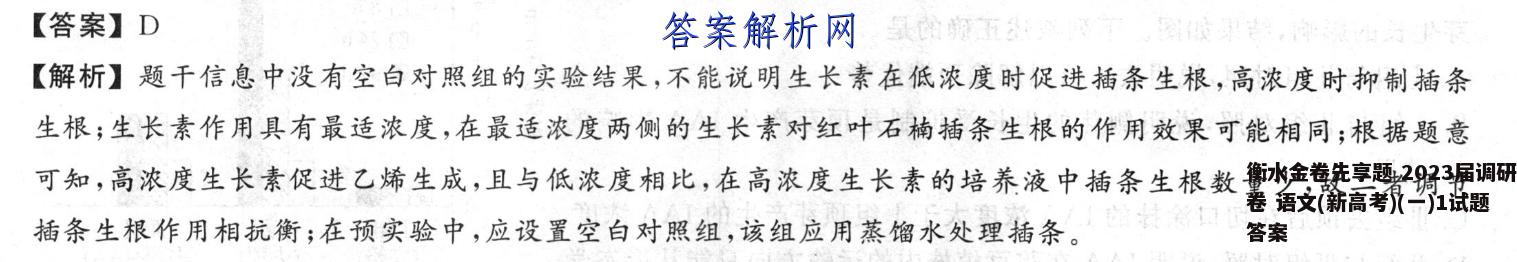 【答案】D
答案解析网
【解析】题干信息中没有空白对照组的实验结果,不能说明生长素在低浓度时促进插条生根,高浓度时抑制插条
生根;生长素作用具有最适浓度,在最适浓度两侧的生长素对红叶石楠插条生根的作用效果可能相同;根据题意
可知,高浓度生长素促进乙烯生成,且与低浓度相比,在高浓度生长素的培养液中插条生根数量少,故二者调节
插条生根作用相抗衡;在预实验中,应设置空白对照组,该组应用蒸馏水处理插条。
衡水金卷先享题 2023届调研
卷 语文(新高考)(一)1试题
答案